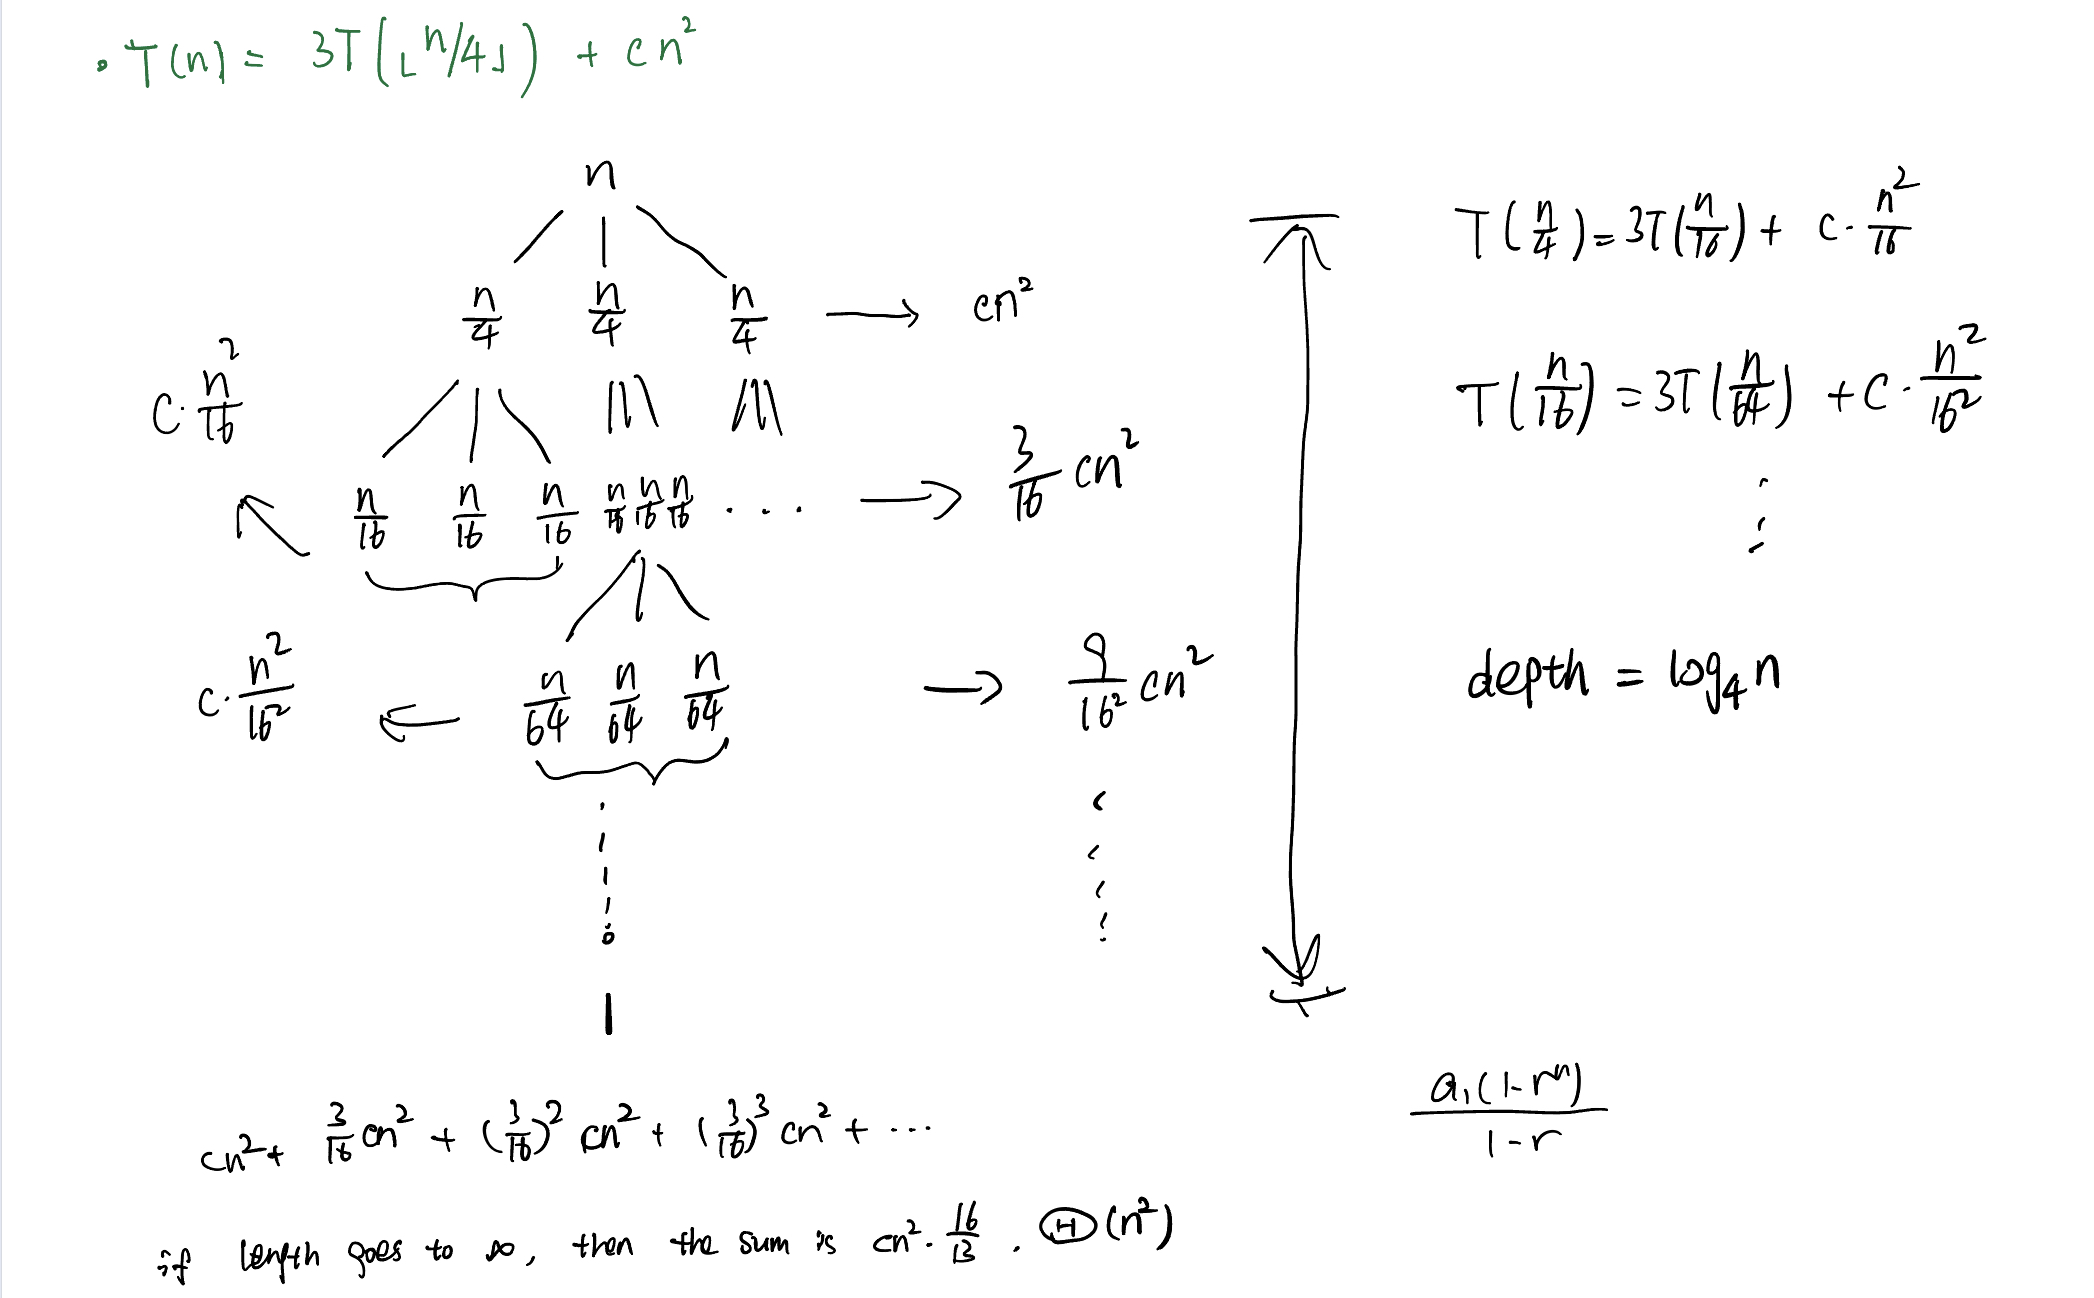 • T(n) = 3T(⌊n/4⌋) + cn²
n
n/4 n/4 n/4 → cn²
c·n²/16
n/16 n/16 n/16 n/16 n/16 n/16 ... → 3/16 cn²
c·n²/16² ← n/64 n/64 n/64 → 9/16² cn²
1
T(n/4) = 3T(n/16) + c·n²/16
T(n/16) = 3T(n/64) + c·n²/16²
depth = log₄n
a₁(1-rⁿ)/1-r
cn² + 3/16 cn² + (3/16)² cn² + (3/16)³ cn² + ...
if length goes to ∞, then the sum is cn²·16/13. Θ(n²)